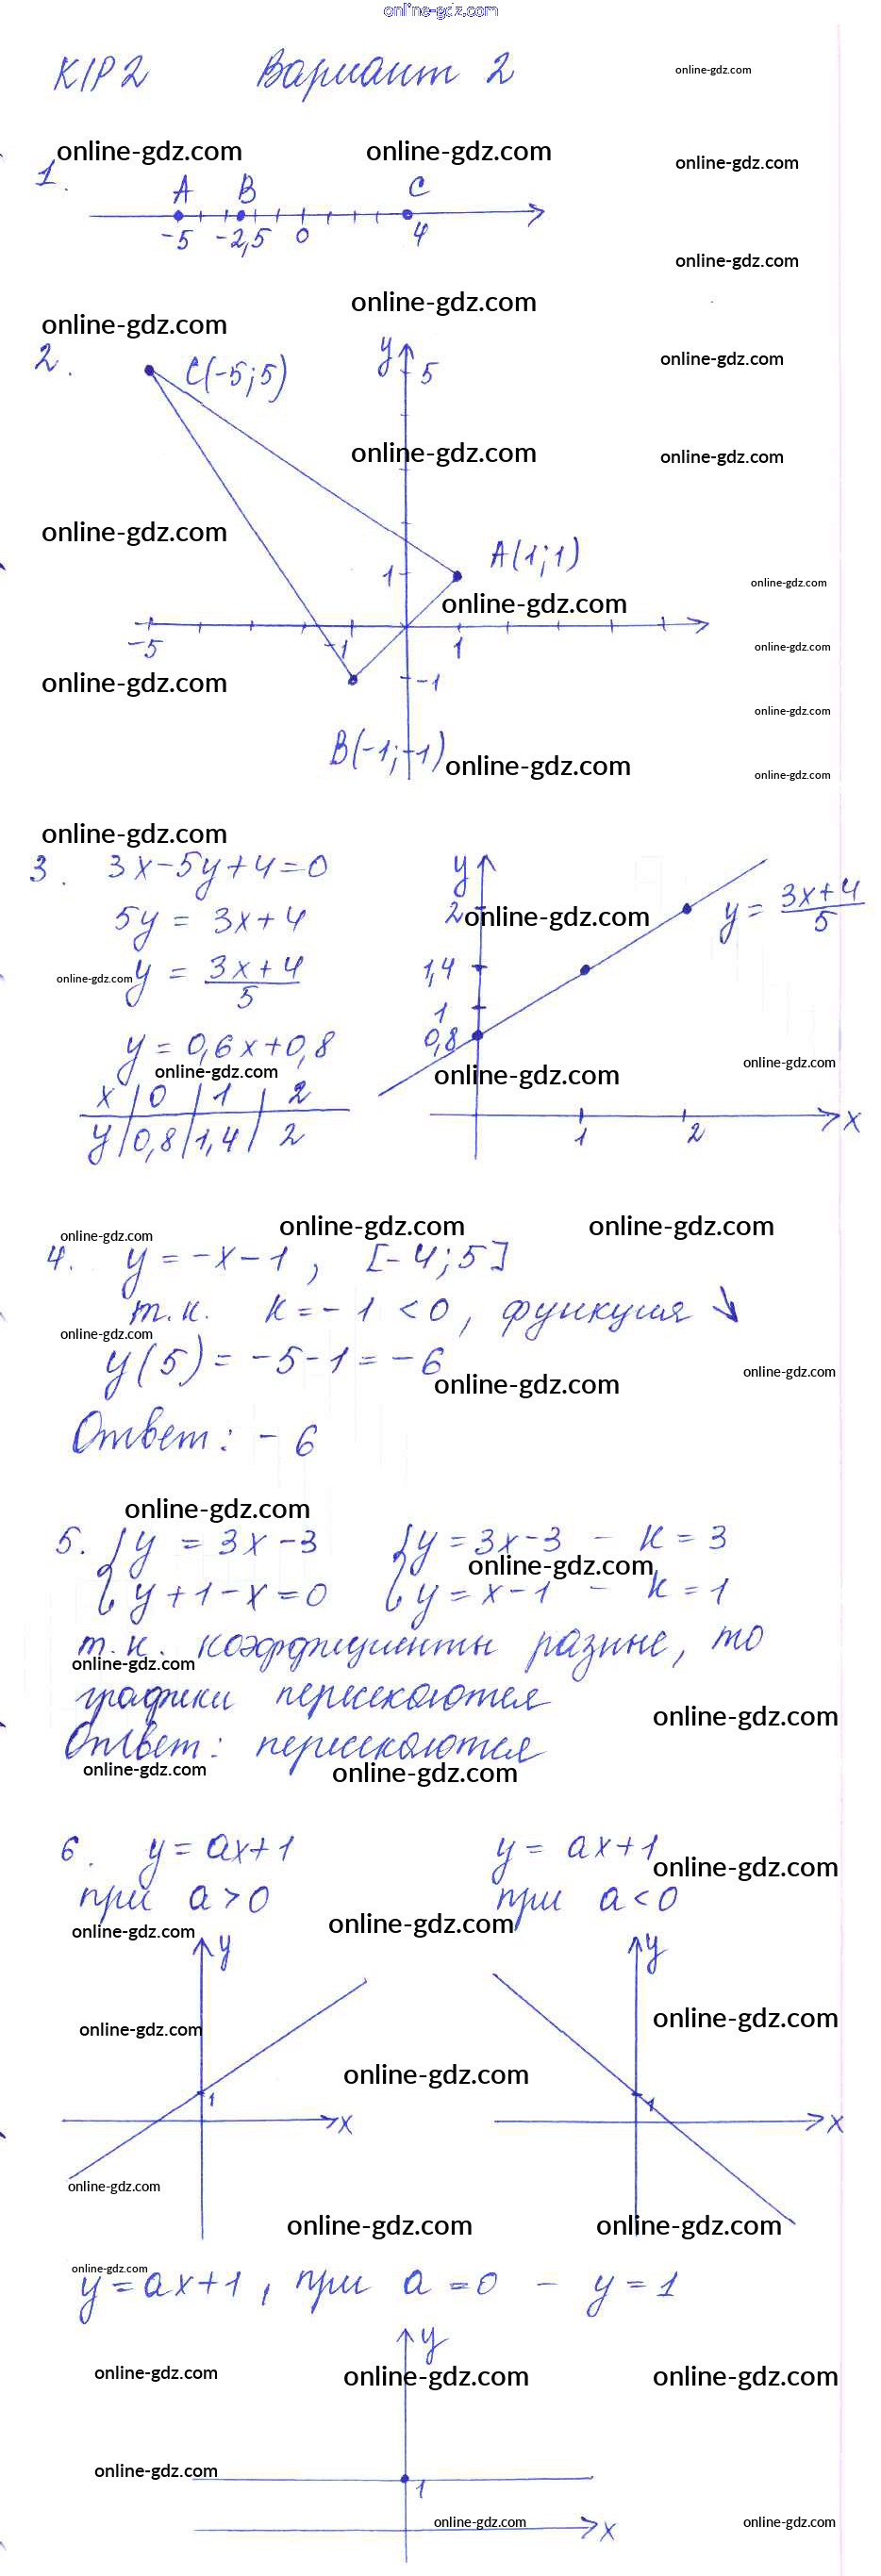 online-gdz.com
К/Р 2 Вариант 2 online-gdz.com
online-gdz.com online-gdz.com online-gdz.com
1. A B C
-5 -2,5 0 4
online-gdz.com
online-gdz.com
online-gdz.com
2. C(-5;5) y 5 online-gdz.com
online-gdz.com online-gdz.com
online-gdz.com
A(1;1)
1 online-gdz.com
online-gdz.com
-5 -1 1 online-gdz.com
online-gdz.com -1
online-gdz.com
B(-1;-1) online-gdz.com online-gdz.com
online-gdz.com
3. 3x-5y+4=0 y
5y = 3x+4 2 online-gdz.com y = 3x+4/5
online-gdz.com y = 3x+4/5 1,4
1
y = 0,6x+0,8 0,8 online-gdz.com
online-gdz.com online-gdz.com
x | 0 | 1 | 2 1 2 x
y | 0,8 | 1,4 | 2
online-gdz.com online-gdz.com online-gdz.com
4. y = -x-1, [-4;5]
т.к. k = -1 < 0, функция ↘
online-gdz.com
y(5) = -5-1 = -6 online-gdz.com
online-gdz.com
Ответ: -6
online-gdz.com
5. { y = 3x-3 { y = 3x-3 - k = 3
online-gdz.com
{ y+1-x=0 { y = x-1 - k = 1
т.к. коэффициенты разные, то
online-gdz.com
графики пересекаются online-gdz.com
Ответ: пересекаются
online-gdz.com online-gdz.com
6. y = ax+1 y = ax+1
online-gdz.com
при a > 0 при a < 0
online-gdz.com online-gdz.com
y y
online-gdz.com online-gdz.com
online-gdz.com
1 1
x x
online-gdz.com
online-gdz.com online-gdz.com
online-gdz.com
y = ax+1, при a = 0 - y = 1
y
online-gdz.com online-gdz.com online-gdz.com
online-gdz.com
1
online-gdz.com online-gdz.com
x